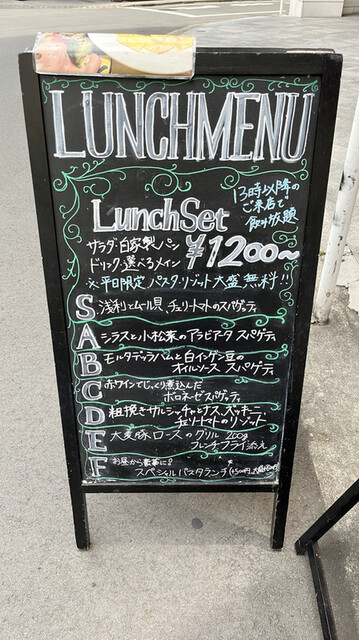 LUNCHMENU
13時以降の
ご来店で
飲み放題
LunchSet
¥1200~
サラダ・自家製パン
ドリンク・選べるメイン
※平日限定 パスタ・リゾット大盛無料!!
S 浅利とムール貝、チェリートマトのスパゲティ
A シラスと小松菜のアラビアータ スパゲティ
B モルタデッラハムと白インゲン豆の
オイルソース スパゲティ
C 赤ワインでじっくり煮込んだ
ボロネーゼスパゲティ
D 粗挽きサルシッチャとナス、ズッキーニ
チェリートマトのリゾット
E 大麦豚ロースのグリル 200g
フレンチフライ添え
F お昼から豪華に?
スペシャルパスタランチ